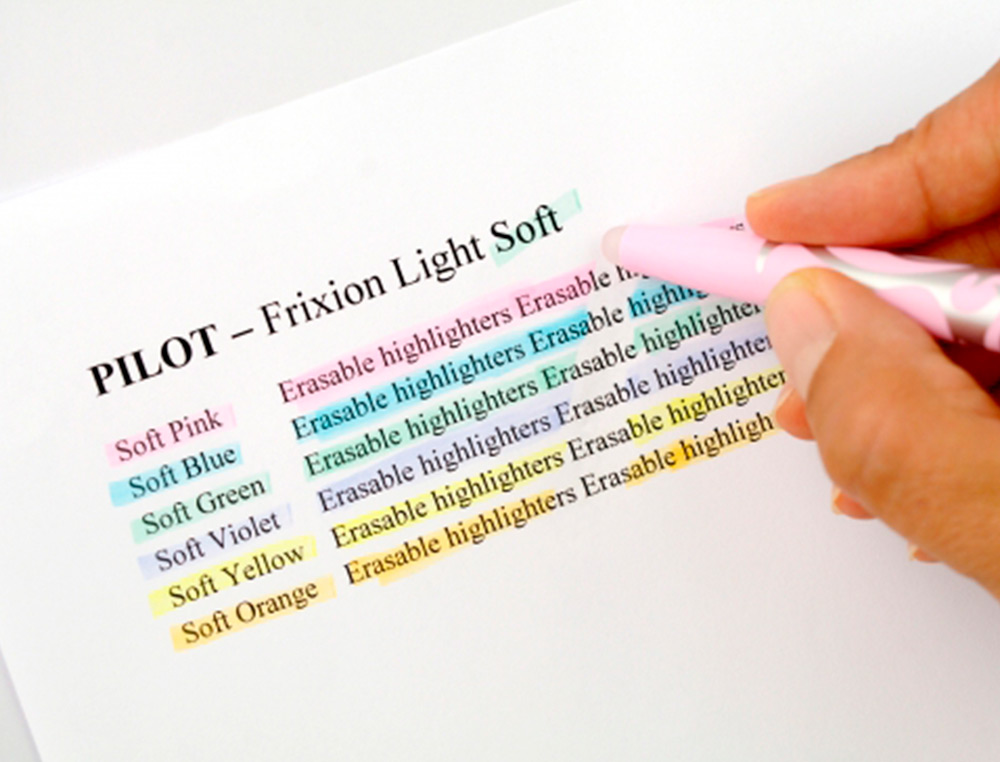 PILOT – Frixion Light Soft
Soft Pink Erasable highlighters Erasable
Soft Blue Erasable highlighters Erasable
Soft Green Erasable highlighters Erasable highlighter
Soft Violet Erasable highlighters Erasable highlighter
Soft Yellow Erasable highlighters Erasable highlighter
Soft Orange Erasable highlighters Erasable highligh